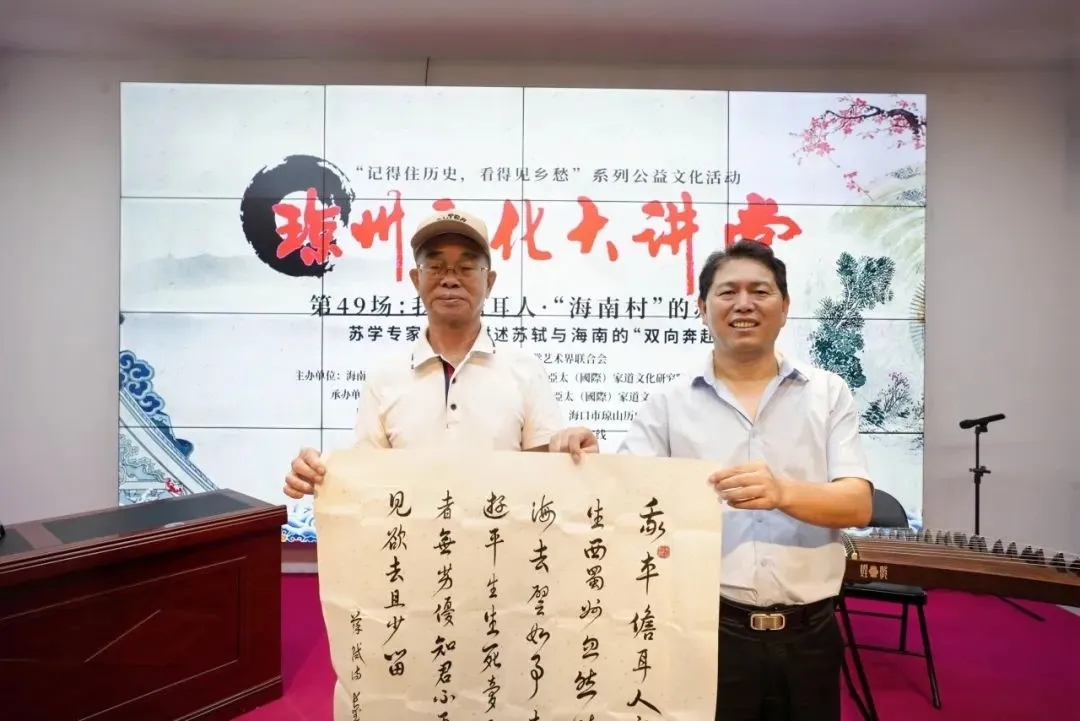 “记得住历史，看得见乡愁”系列公益文化活动
琼州文化大讲堂
第49场:我 耳人·“海南村”的
苏学专家 述苏轼与海南的“双向奔赴
学艺术界联合会
主办单位：海南 亞太（國際）家道文化研究
承办单 亞太（國際）家道文
海口市琼山历
线
我本儋耳人
生西蜀州忽然
海去譬如事
遊平生生死夢
者無劣優知君不
見欲去且少留
蘇軾詩